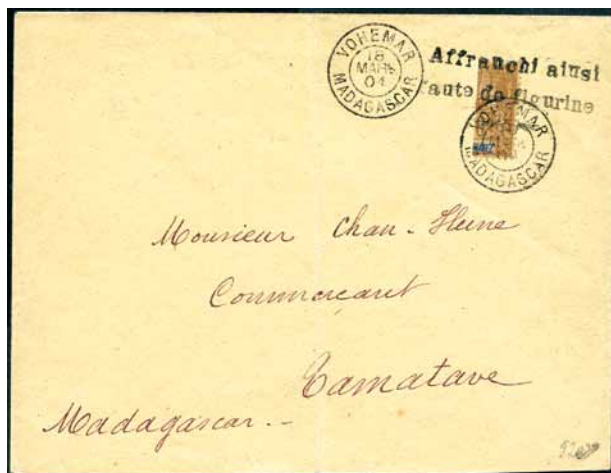 VOHEMAR
18
MARS
04
MADAGASCAR
Affranchi ainsi
faute de figurine
VOHEMAR
MADAGASCAR
Monsieur Chan-Heine
Commerçant
Tamatave
Madagascar